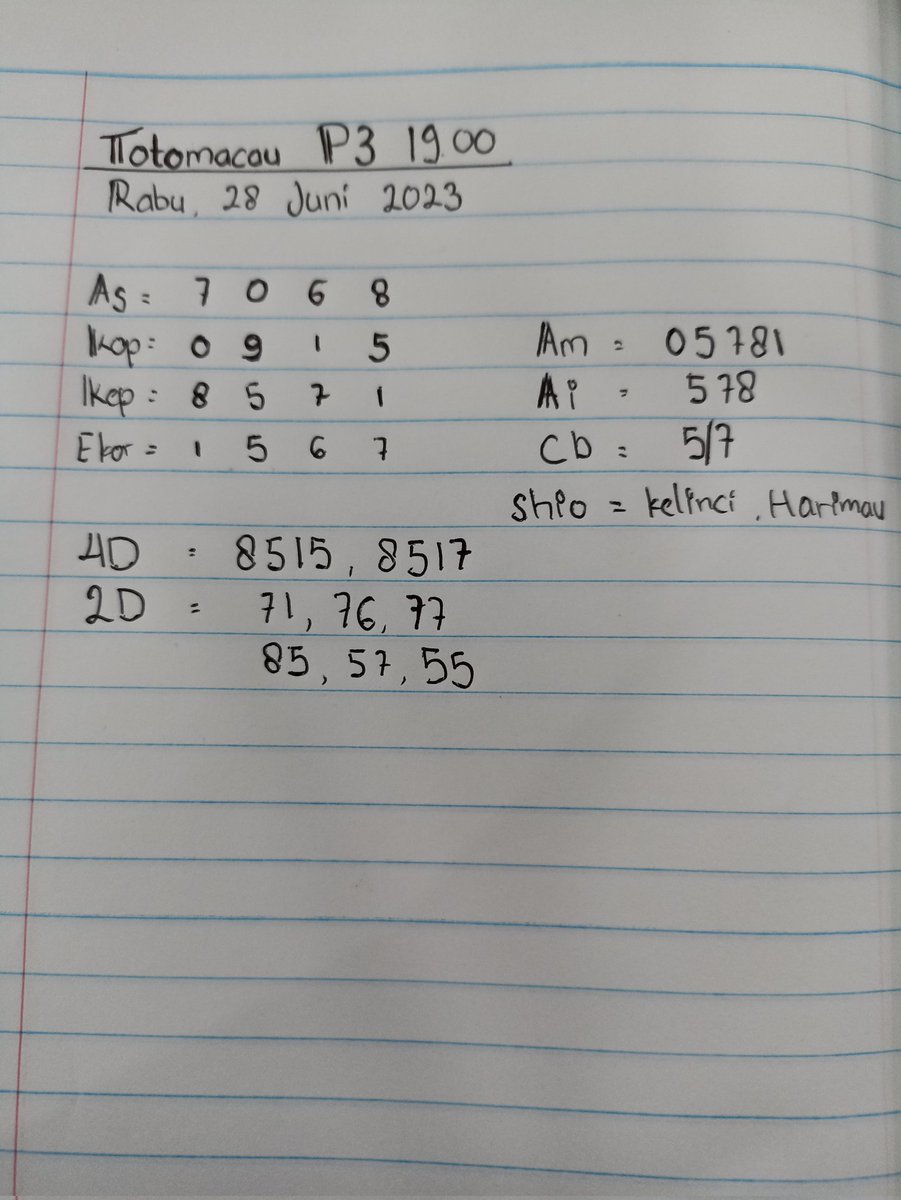 Totomacau P3 19.00
Rabu, 28 Juni 2023
As = 7 0 6 8
Kop: 0 9 1 5
Kep: 8 5 7 1
Ekor = 1 5 6 7
Am = 05781
Ai = 578
Cb = 5/7
Shio = kelinci, Harimau
4D = 8515, 8517
2D = 71, 76, 77
85, 57, 55